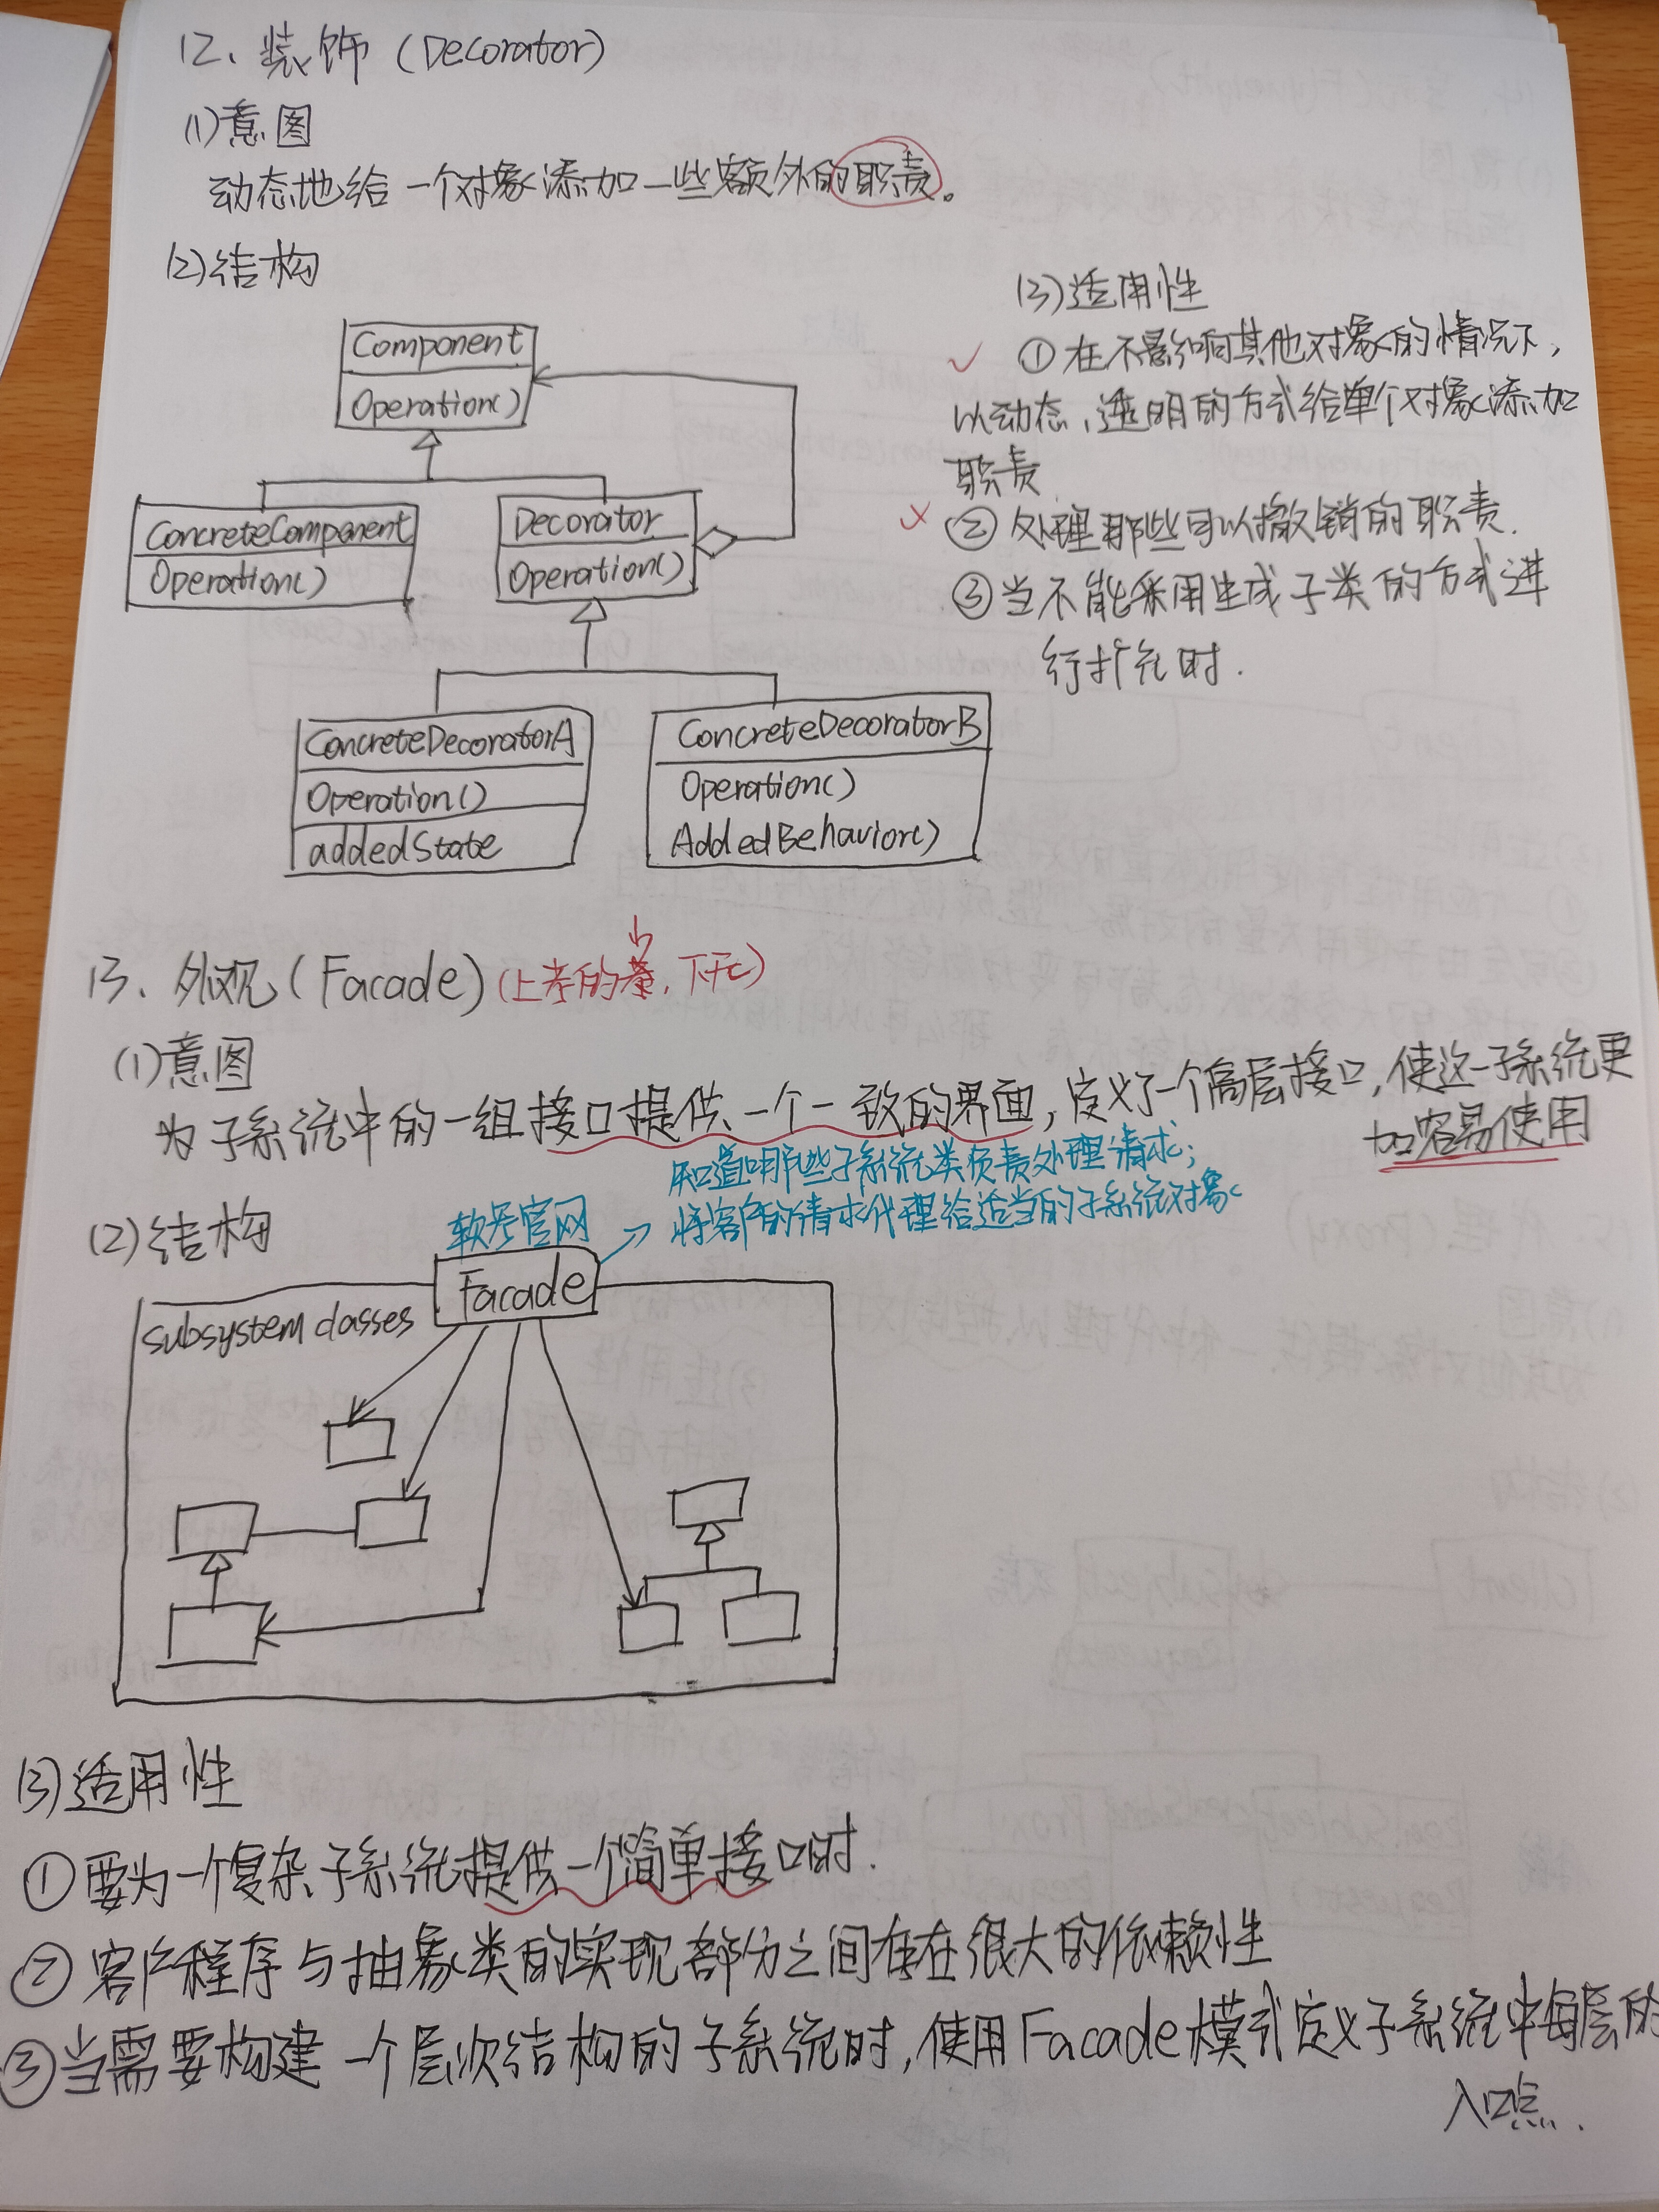 12、装饰（Decorator）
(1)意图
动态地给一个对象添加一些额外的职责。
(2)结构
Component
Operation()
ConcreteComponent
Operation()
Decorator
Operation()
ConcreteDecoratorA
Operation()
addedState
ConcreteDecoratorB
Operation()
AddedBehavior()
(3)适用性
① 在不影响其他对象的情况下，
以动态、透明的方式给单个对象添加
职责
② 处理那些可以撤销的职责.
③ 当不能采用生成子类的方式进
行扩充时.
13、外观（Facade）(上考的, 下午)
(1)意图
为子系统中的一组接口提供一个一致的界面，定义了一个高层接口，使这一子系统更
加容易使用
知道哪些子系统类负责处理请求；
将客户的请求代理给适当的子系统对象
(2)结构
软考官网
Facade
subsystem classes
(3)适用性
① 要为一个复杂子系统提供一个简单接口时.
② 客户程序与抽象类的实现部分之间存在很大的依赖性
③ 当需要构建一个层次结构的子系统时，使用Facade模式定义子系统中每层的
入口点.